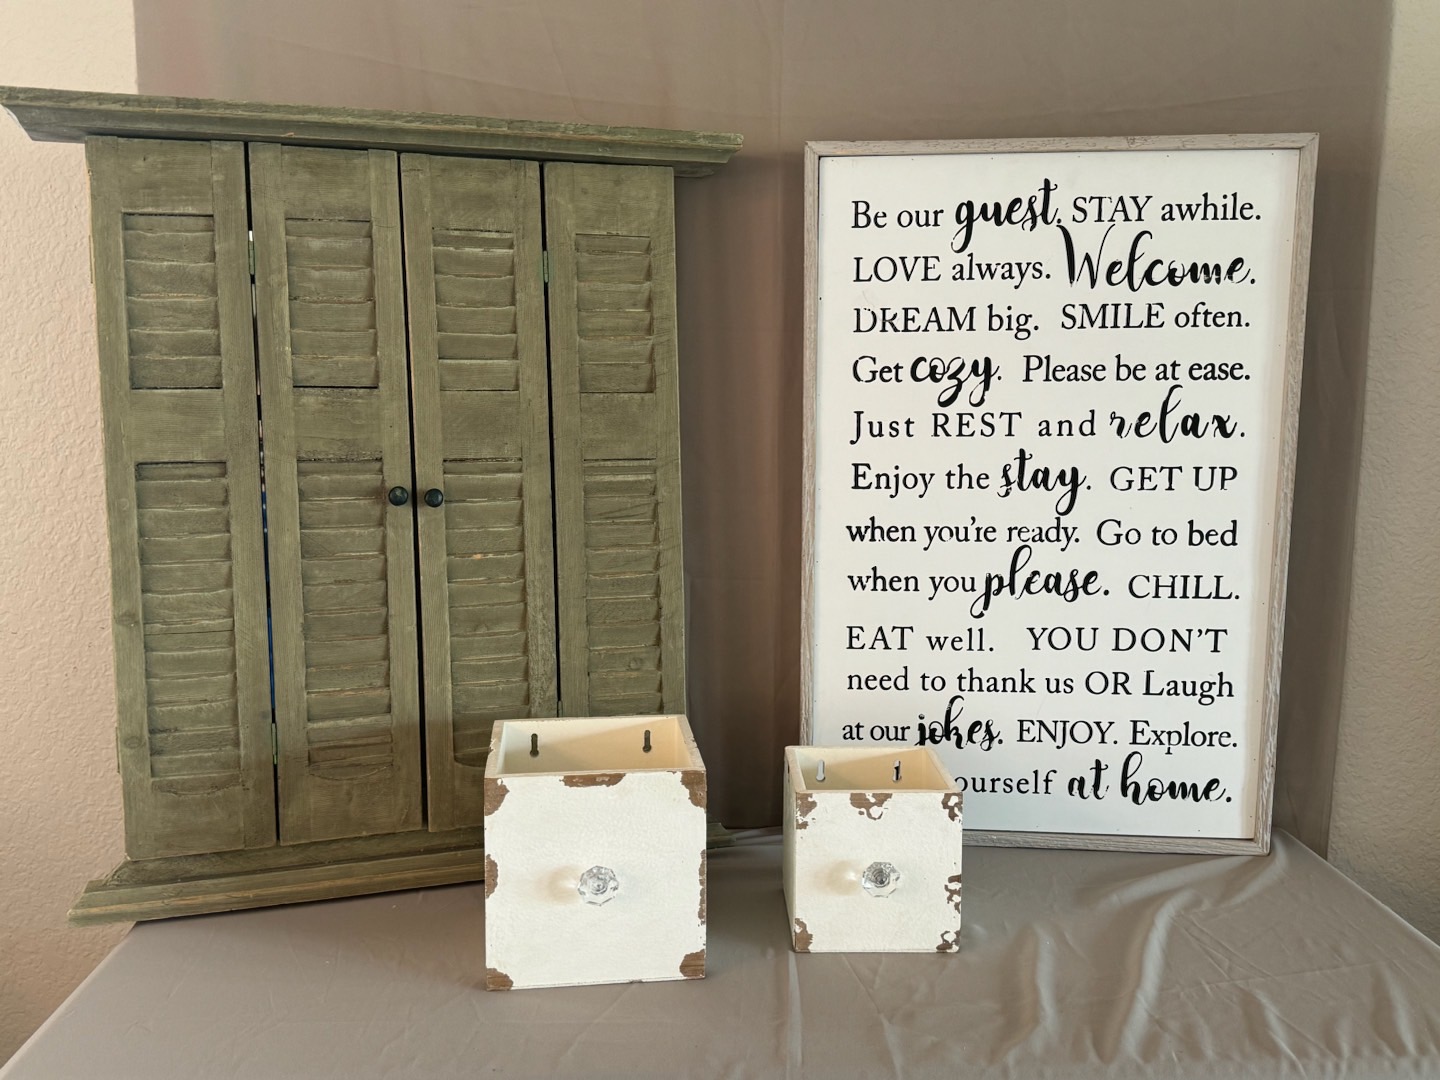 Be our guest. STAY awhile.
LOVE always. Welcome.
DREAM big. SMILE often.
Get cozy. Please be at ease.
Just REST and relax.
Enjoy the stay. GET UP
when you're ready. Go to bed
when you please. CHILL.
EAT well. YOU DON'T
need to thank us OR Laugh
at our jokes. ENJOY. Explore.
ourself at home.